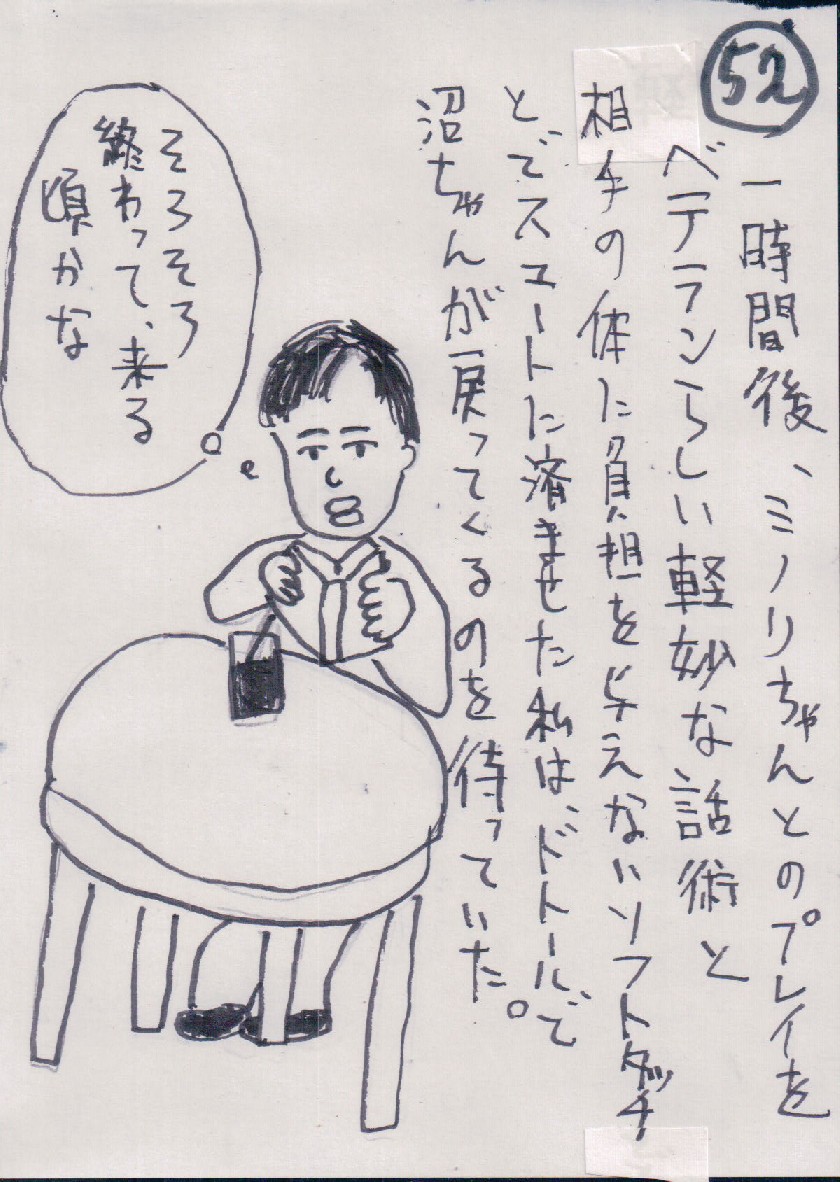 52
一時間後、ミノリちゃんとのプレイを
ベテランらしい軽妙な話術と
相手の体に負担を与えないソフトタッチ
とでスムートに済ませた私は、ドトールで
沼ちゃんが戻ってくるのを待っていた。
そろそろ
終わって、来る
頃かな